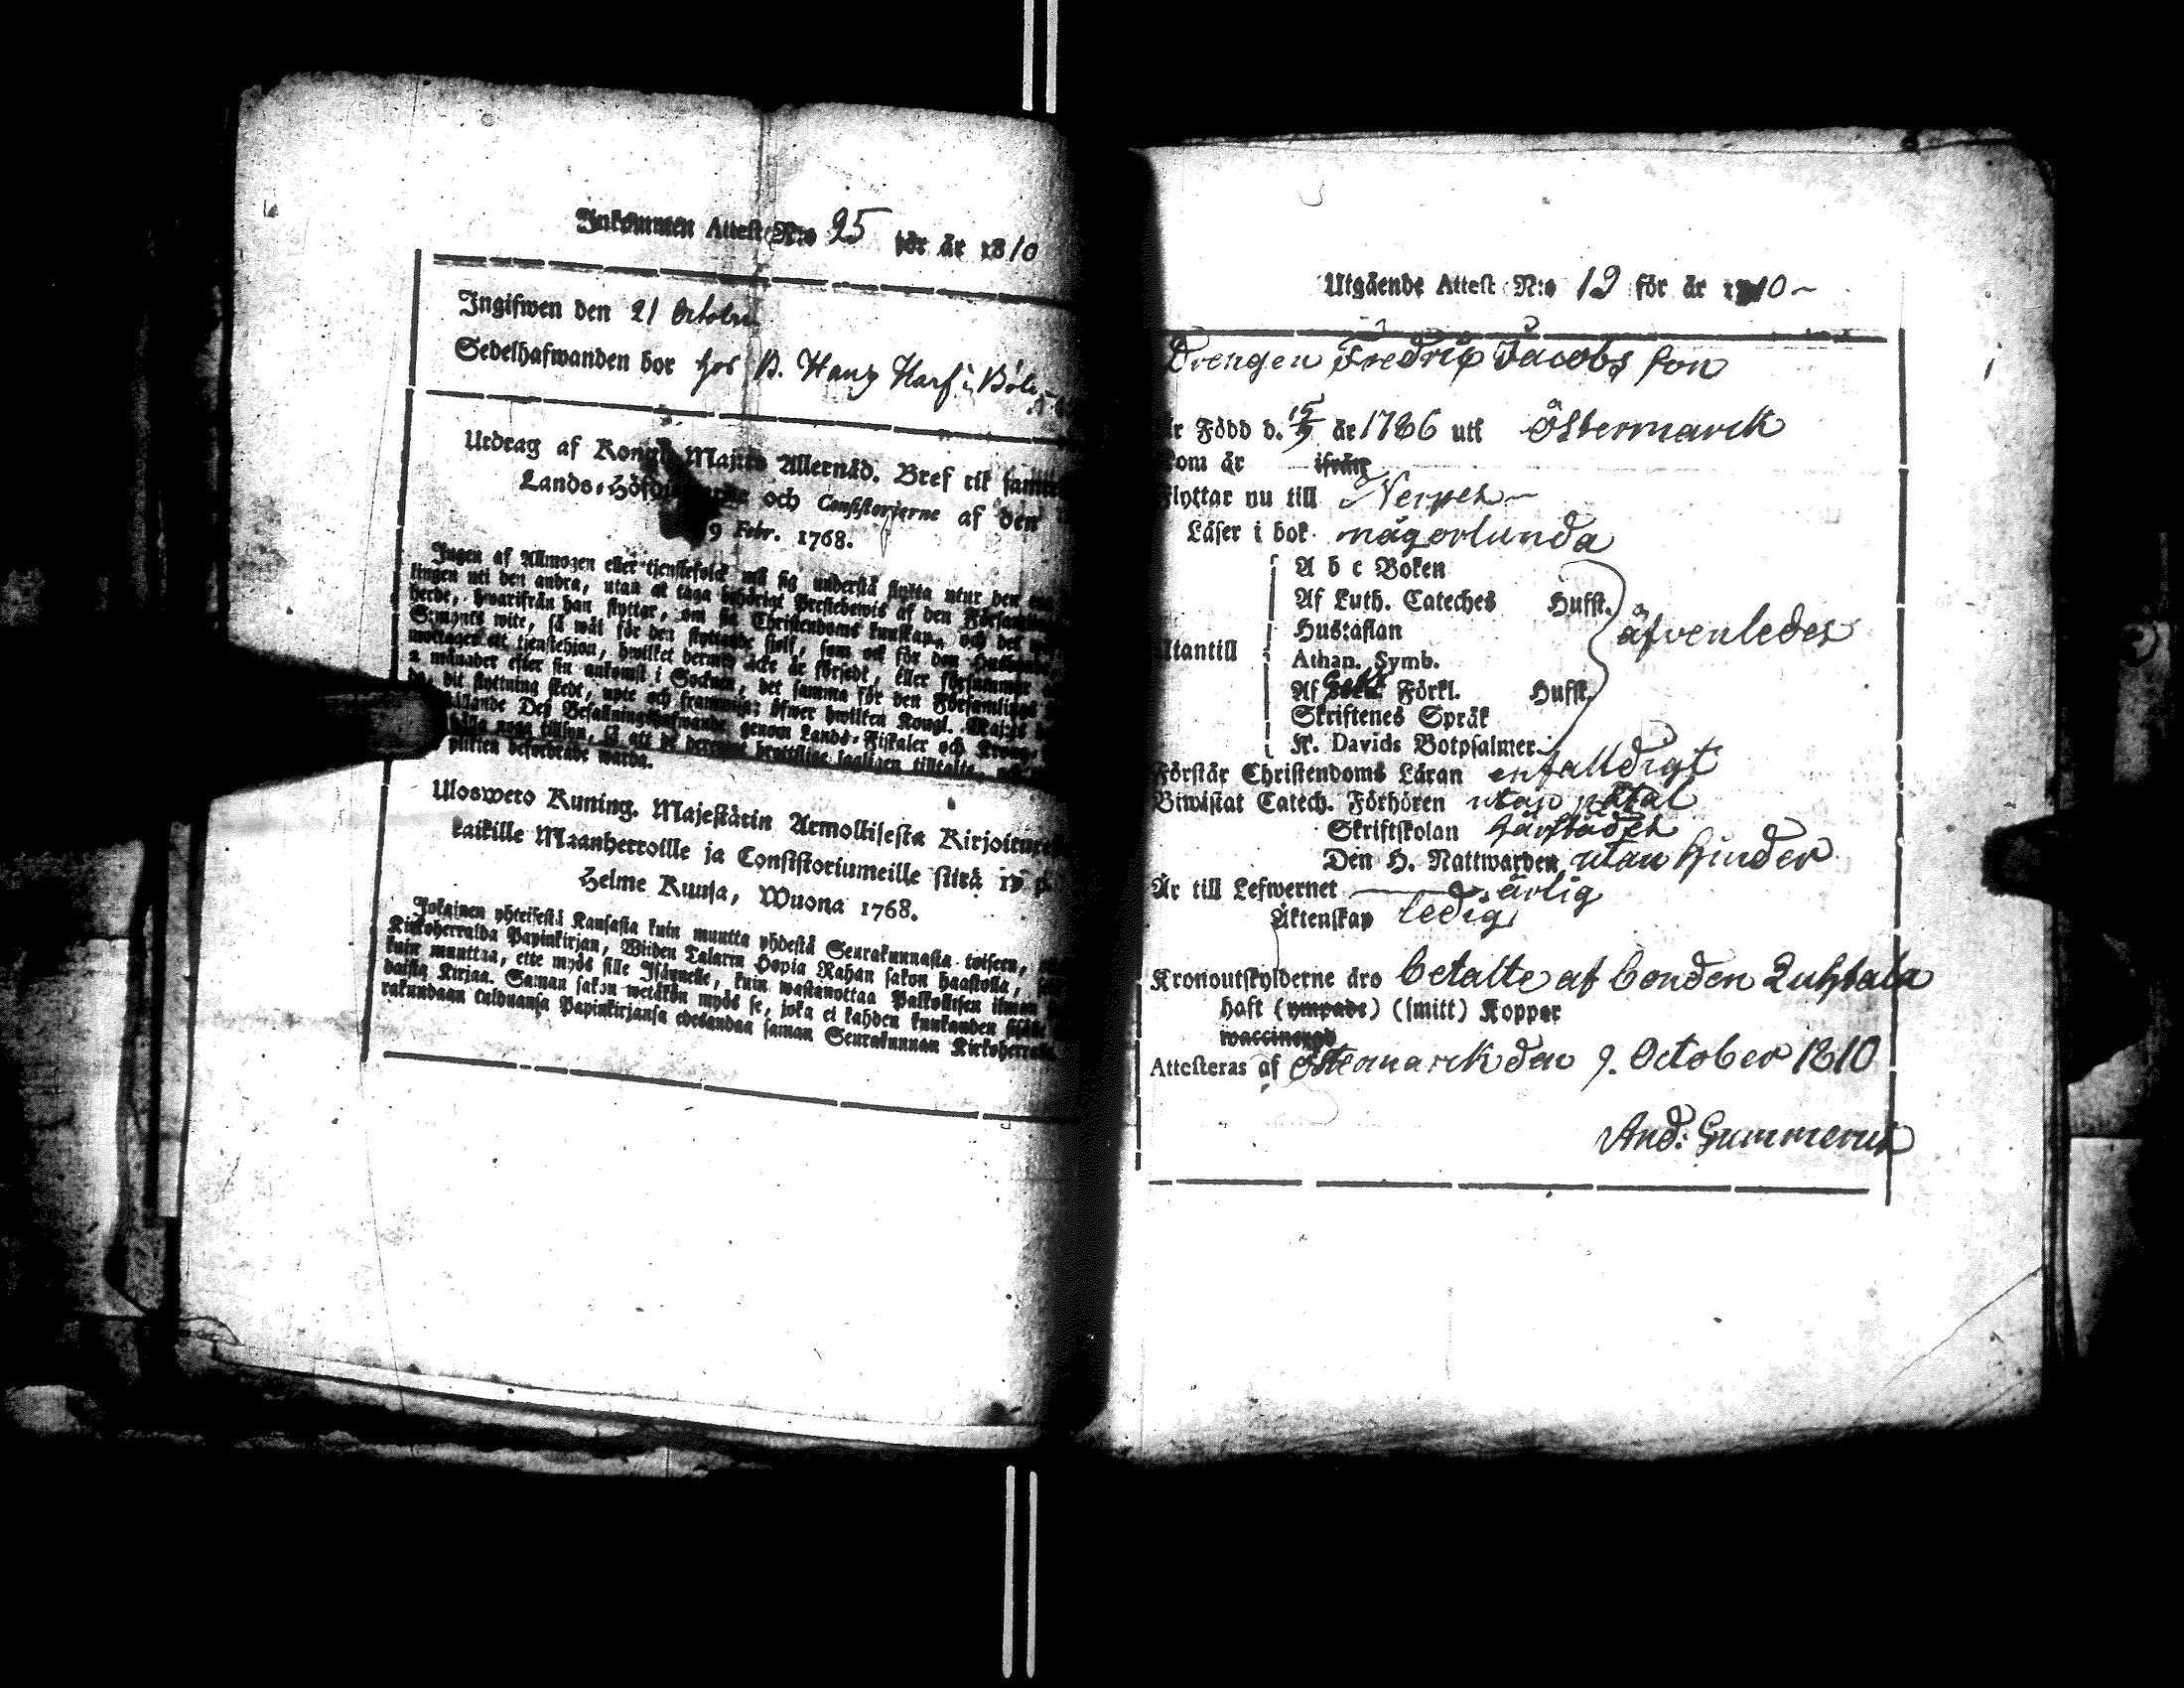 Inkommen Attest N:o 25 för år 1810
Ingifwen den 21 Octobr
Sedelhafwanden bor hos B. Hans Harf i Böle
Utdrag af Kongl. Maj:ts Allernåd. Bref til samtl.
Lands-Höfdingarne och Consistorierne af den
19 Febr. 1768.
Ingen af Allmogen eller tjenstefolck må sig understå flytta utur den ena
lingen uti den andra, utan at taga behörigt Prestebewis af den Församl
herde, hwarifrån han flyttar, om sin Christendoms kunskap, och det
S:mynts wite, så wäl för den flyttande sjelf, som ock för den Husbonde
mottager ett tjenstehjon, hwilket dermed icke är försedt, eller försummar
2 månader efter sin ankomst i Socknen, det samma för den Församlings
de, dit flyttning skedt, upte och framwisa; öfwer hwilken Kongl. Maj:ts
hållande Deß Befallningshafwande genom Lands-Fiskaler och Krono-
hålla noga tillsyn, så att de deremot brottslige lagligen tilltalte, och
plikten befordrade warda.
Uloswero Kuning. Majestätin Armollisesta Kirjoituxesta
kaikille Maanherroille ja Consistoriumeille siitä 19 p.
Helme Kuusa, Wuona 1768.
Jokainen yhteisestä Kansasta kuin muutta yhdestä Seurakunnasta toiseen,
Kirkoherralda Papinkirjan, Wiiden Talarin Hopia Rahan sakon haastolla,
kuin muuttaa, ette myös sille Isännelle, kuin wastanottaa Palkollisen ilman
daista Kirjaa. Saman sakon wetäkön myös se, joka ei kahden kuukauden sisällä
rakundaan tulduansa Papinkirjansa edesandaa saman Seurakunnan Kirkoherralle
Utgående Attest N:o 19 för år 1810
Drengen Fredric Jacobs son
Är Född d. 15/7 år 1786 uti Östermarck
Som är ifrån
Flyttar nu till Nerpes
Läser i bok någorlunda
A b c Boken
Af Luth. Cateches Hufst.
Hustaflan
Utantill
Athan. Symb.
äfvenledes
Af Förkl. Hufst.
Skriftenes Språk
K. Davids Botpsalmer
Förstår Christendoms Läran enfalldigt
Biwistat Catech. Förhören utan påtal
Skriftskolan härstädes
Den H. Nattwarden utan hinder
Är till Lefwernet ärlig
Äktenskap ledig
Kronoutskylderne äro betalte af bonden Luhtala
haft (ympade) (smitt) Koppor
waccinerad
Attesteras af Östermarck den 9. October 1810
And: Gummerus